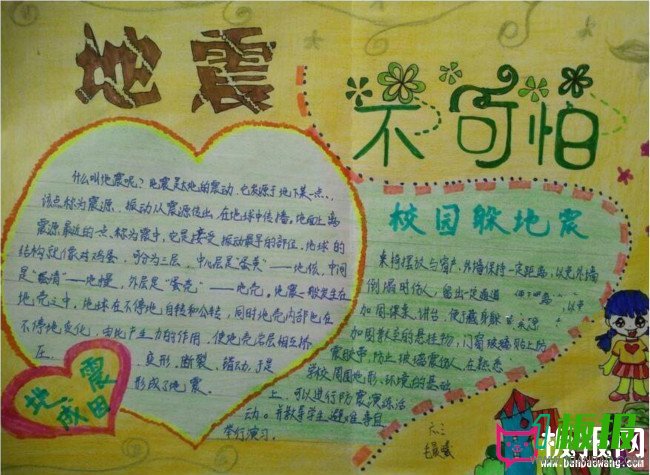 地震
不可怕
什么叫地震呢?地震是大地的震动,它发源于地下某一点,
该点称为震源。振动从震源传出,在地球中传播,地面上离
震源最近的一点称为震中,它是接受振动最早的部位。地球的
结构就像对鸡蛋,可分为三层,中心层是“蛋黄”——地核,中间
是“蛋清”——地幔,外层是“蛋壳”——地壳。地震一般发生在
地壳之中,地球在不停地自转和公转,同时地壳内部也在
不停地变化,由此产生力的作用,使地壳岩层相互挤
压。变形、断裂、错动,于是
形成了地震。
地震
成因
校园躲地震
桌椅摆放与窗户、外墙保持一定距离,以免外墙
倒塌时伤人,留出一定通道,以
加固课桌、讲台,便于藏身躲
加固教室的悬挂物,门窗玻璃贴上防
震胶带,防止玻璃震伤人,在熟悉
学校周围地形、环境的基础
上,可以进行防震演练活
动。并教导学生避难,
举行演习。
六.三
板报网
板报网
www.banbaowang.com